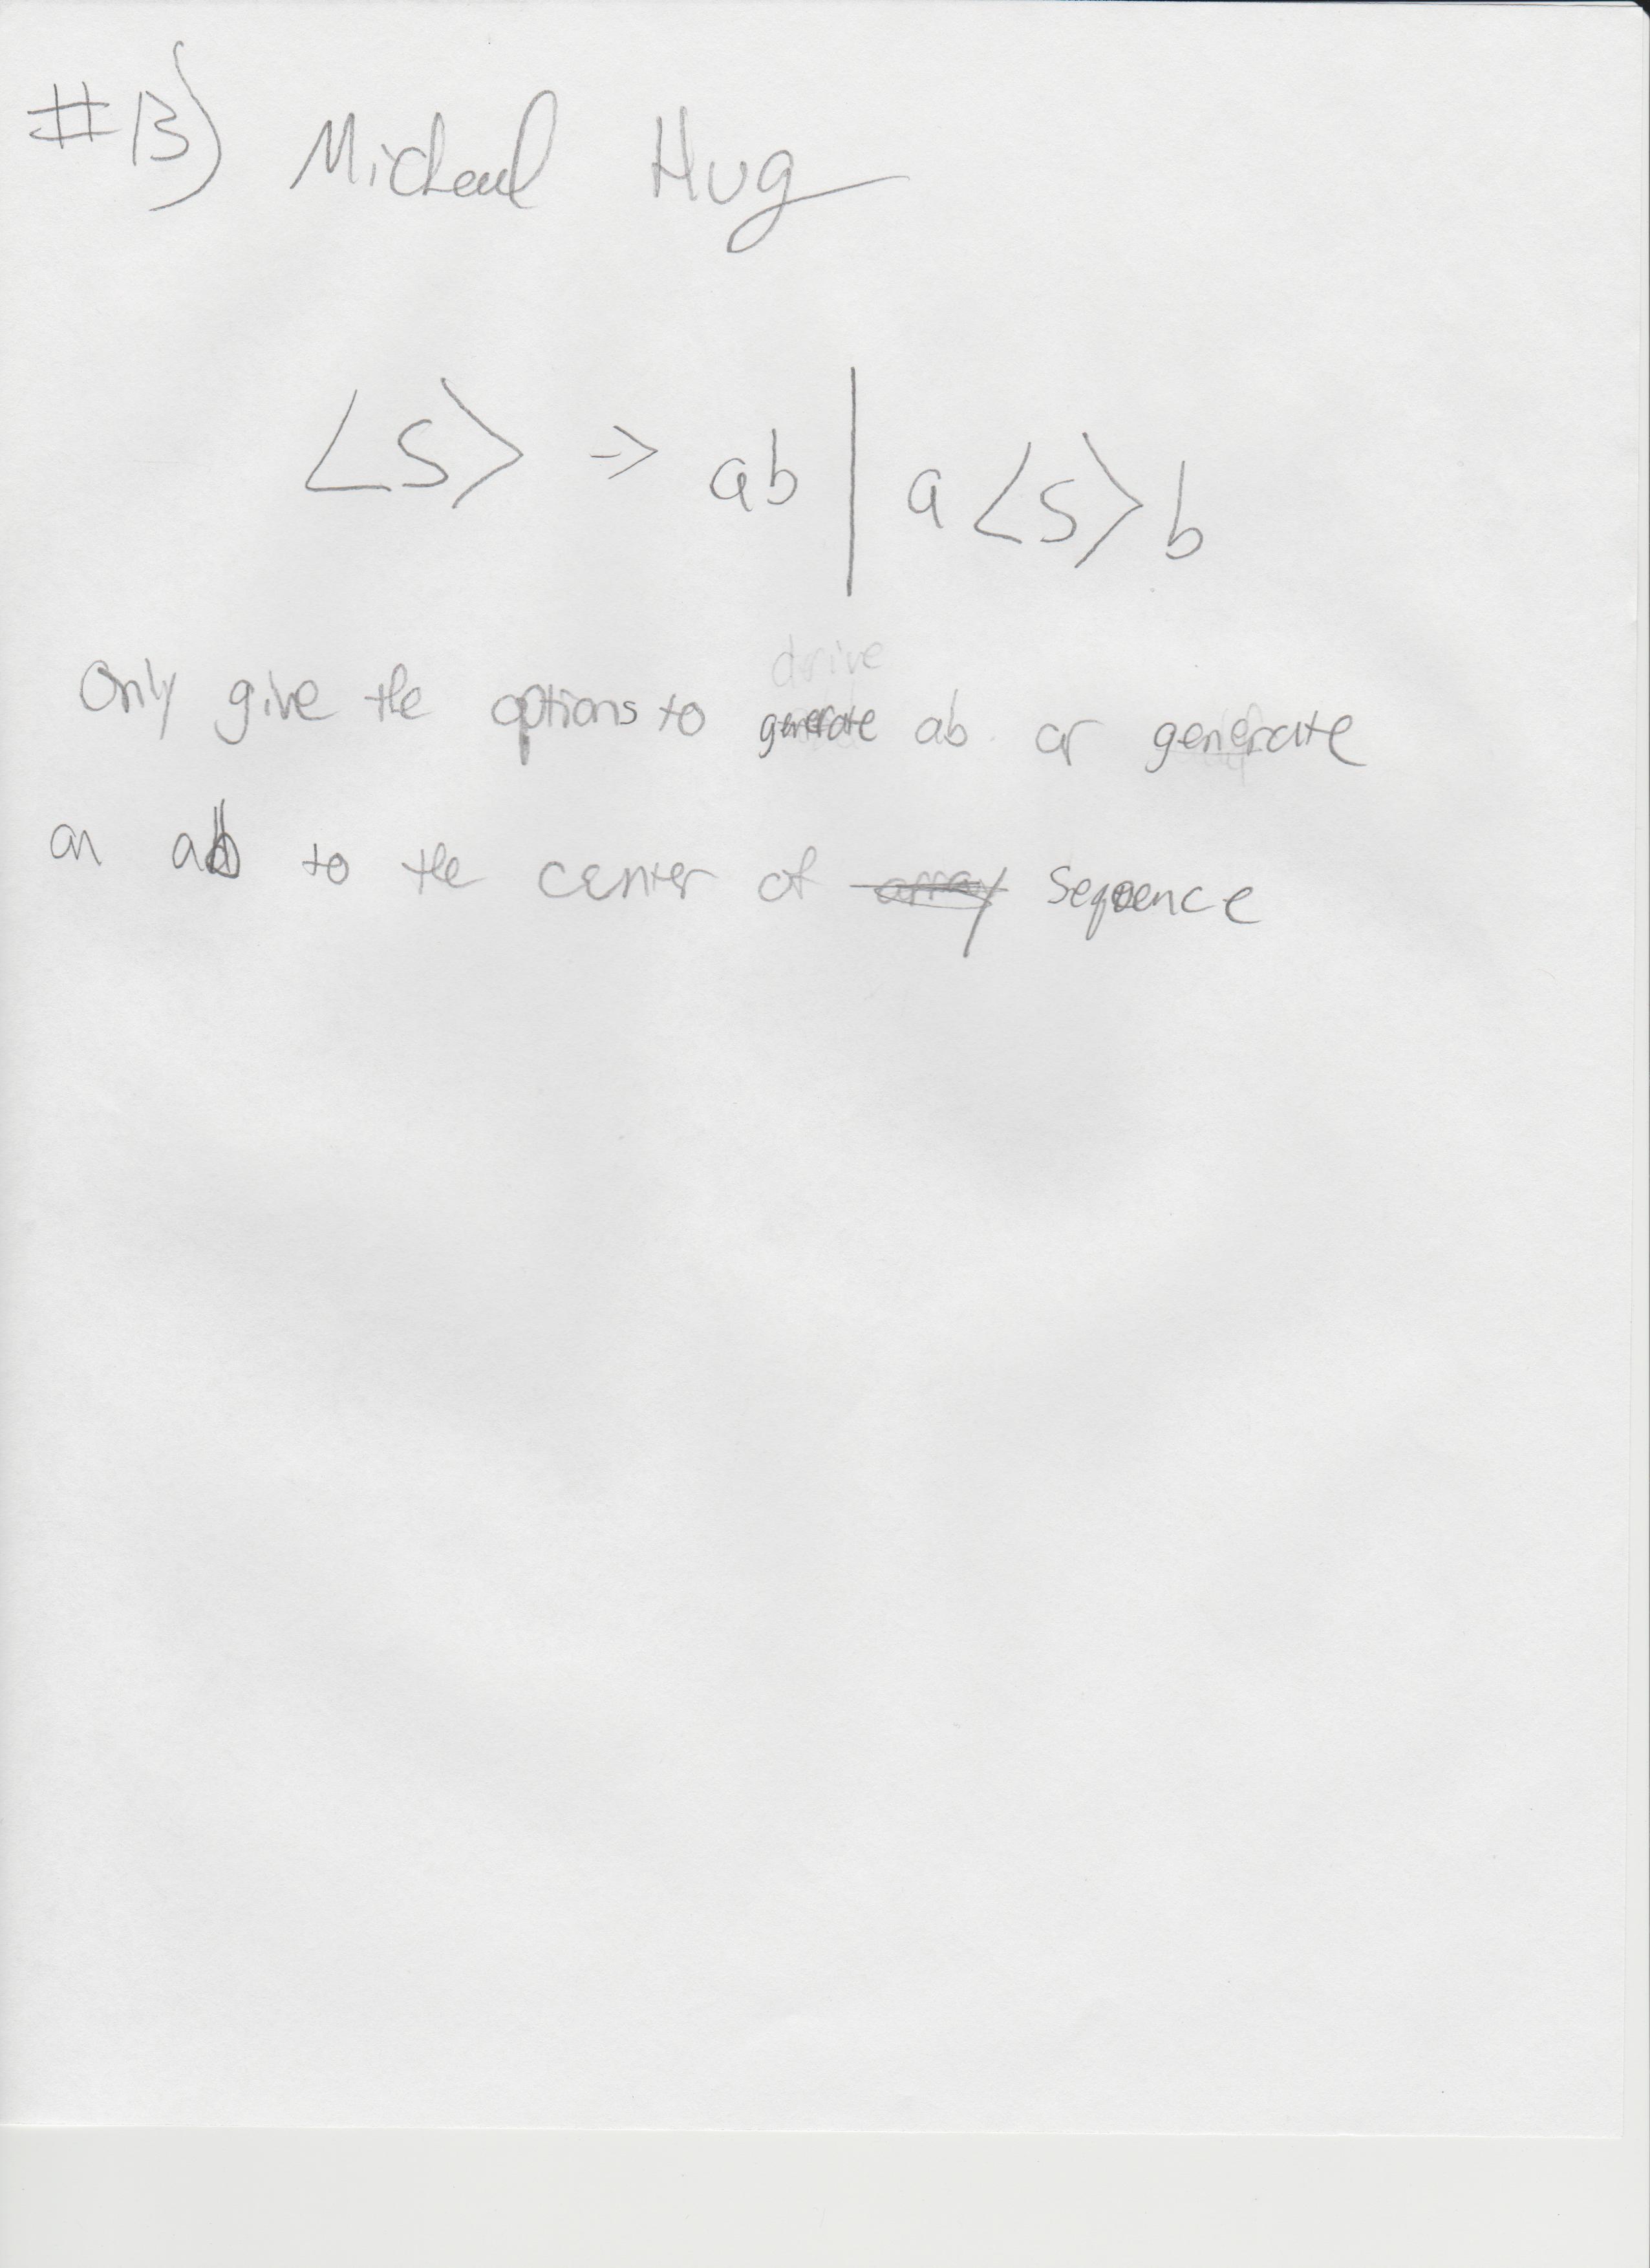 #13) Michael Hug
<S> → ab | a<S>b
drive
Only give the options to generate ab or generate
an ab to the center of array sequence